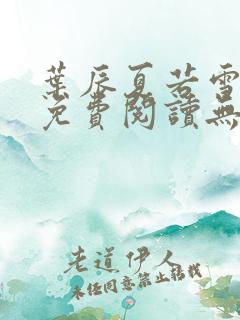 葉辰夏若雪
免費閱讀無
老道伊人
未經同意禁止轉載